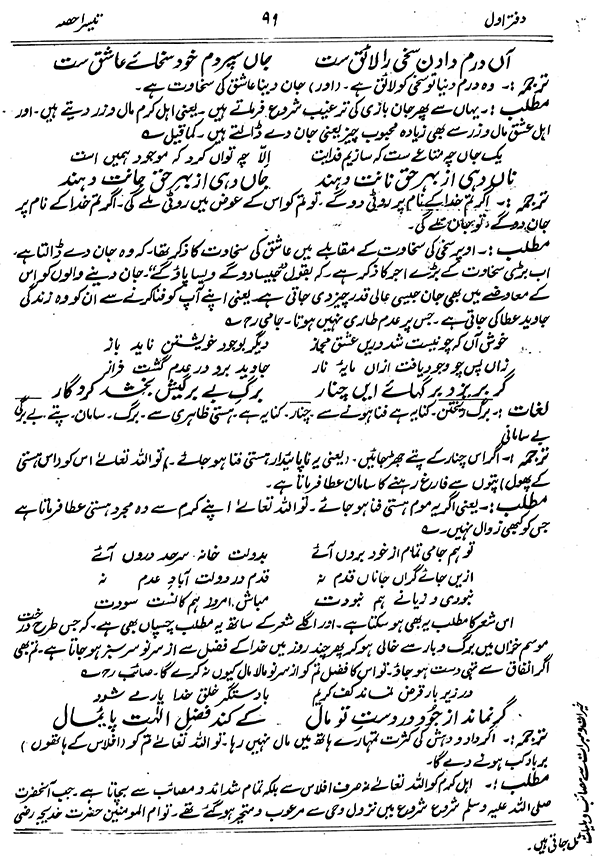 دفتر اول ۹۹ تیسرا حصہ
آں درم دادن سخی را لائق ست جاں سپردم خود سخائے عاشق ست
ترجمہ:۔ وہ درم دینا تو سخی کو لائق ہے۔ (اور) جان دینا عاشق کی سخاوت ہے۔
مطلب:۔ یہاں سے پھر جان بازی کی ترغیب شروع فرماتے ہیں۔ یعنی اہل کرم مال و زر دیتے ہیں۔ اور
اہل عشق مال و زر سے بھی زیادہ محبوب چیز یعنی جان دے ڈالتے ہیں۔ کما قیل ؎
یک جاں چہ متاعے ست کہ سازیم فدایت الّا چہ تواں کرد کہ موجود ہمیں است
ناں دہی از بہر حق نانت دہند جاں دہی از بہر حق جانت دہند
ترجمہ:۔ اگر تم خدا کے نام پر روٹی دو گے۔ تو تم کو اس کے عوض میں روٹی ملے گی۔ اگر تم خدا کے نام پر
جان دو گے، تو جان ملے گی۔
مطلب:۔ اوپر سخی کی سخاوت کے مقابلے میں عاشق کی سخاوت کا ذکر تھا، کہ وہ جان دے ڈالتا ہے،
اب بڑی سخاوت کے بڑے اجر کا ذکر ہے۔ کہ بقول "جیسا دو گے ویسا پاؤ گے"۔ جان دینے والوں کو اس
کے معاوضے میں بھی جان جیسی عالی قدر چیز دی جاتی ہے۔ یعنی اپنے آپ کو فنا کرنے سے ان کو وہ زندگی
جاوید عطا کی جاتی ہے۔ جس پر عدم طاری نہیں ہوتا۔ جامیؒ ؎
خوش آں کہ چو نیست شد دریں عشق مجاز دیگر بوجود خویشتن ناید باز
زاں پس چو وجود یافت ازاں مایۂ ناز جاوید برو در عدم گشت فراز
گر بریزد برگہائے ایں چنار برگ بے برگیش بخشد کردگار
لغات:۔ برگ ریختن۔ کنایہ ہے فنا ہونے سے۔ چنار۔ کنایہ ہے ہستی ظاہری سے۔ برگ۔ سامان۔ پتے۔ بے برگی
بے سامانی
ترجمہ:۔ اگر اس چنار کے پتے جھڑ جائیں۔ (یعنی یہ ناپائیدار ہستی فنا ہو جائے۔) تو اللہ تعالےٰ اس کو (اس ہستی
کے پھول) پتوں سے فارغ رہنے کا سامان عطا فرماتا ہے۔
مطلب:۔ یعنی اگر یہ موہوم ہستی فنا ہو جائے۔ تو اللہ تعالےٰ اپنے کرم سے وہ مجرد ہستی عطا فرماتا ہے
جس کو کبھی زوال نہیں۔ ؎
تو ہم جامی تمام از خود بروں آئے بدولت خانۂ سرمد دروں آئے
ازیں جائے گراں جاناں قدم نہ قدم در دولت آباد عدم نہ
نبودی و زیانے ہم نبودت مباش امروز ہم کانست سودت
اس شعر کا مطلب یہ بھی ہو سکتا ہے۔ اور اگلے شعر کے ساتھ یہ مطلب چسپاں بھی ہے۔ کہ جس طرح درخت
موسم خزاں میں برگ و بار سے خالی ہو کر پھر چند روز میں خدا کے فضل سے از سر نو سرسبز ہو جاتا ہے۔ تم بھی
اگر انفاق سے تہی دست ہو جاؤ۔ تو اس کا فضل تم کو از سر نو مالا مال کیوں نہ کرے گا۔ صائبؒ ؎
در زیر بار قرض نماند کف کریم با دستگیر خلق خدا یار مے شود
گر نماند از جود در دست تو مال کے کند فضل الٰہت پائمال
ترجمہ:۔ اگر داد و دہش کی کثرت تمہارے ہاتھ میں مال نہیں رہا۔ تو اللہ تعالےٰ تم کو (افلاس کے ہاتھوں)
برباد کب ہونے دے گا۔
مطلب:۔ اہل کرم کو اللہ تعالےٰ نہ صرف افلاس سے بلکہ تمام شدائد و مصائب سے بچاتا ہے۔ جب آنحضرت
صلی اللہ علیہ وسلم شروع شروع میں نزول وحی سے مرعوب و متحیر ہو گئے تھے۔ تو ام المومنین حضرت خدیجہ رضی
خیرات و مبرات سے مصائب و بلیات
ٹل جاتی ہیں۔